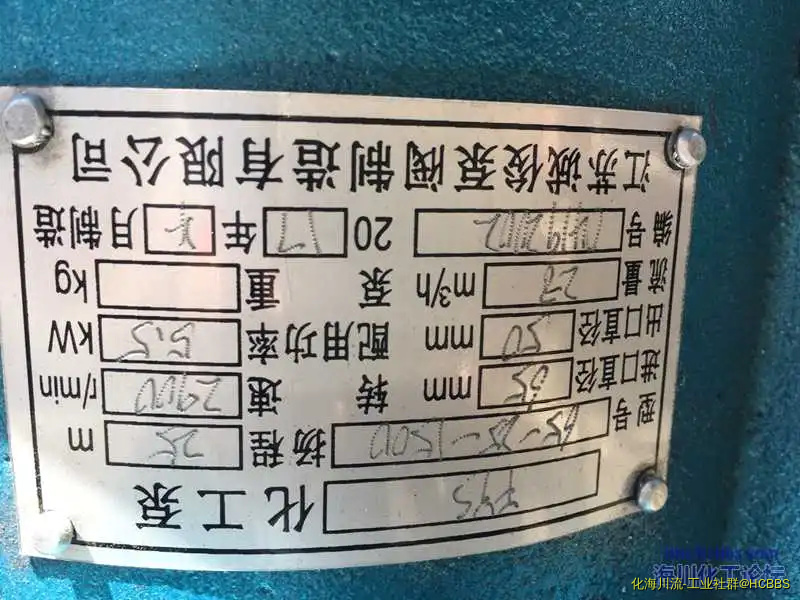 FYS 化工泵
型号 扬程 25 m
进口直径 65 mm 转速 2900 r/min
出口直径 50 mm 配用功率 5.5 kW
流量 m³/h 泵重 kg
编号 20 17 年 月制造
江苏诚俊泵阀制造有限公司
海川化工论坛
化海川流-工业社群@HCBBS